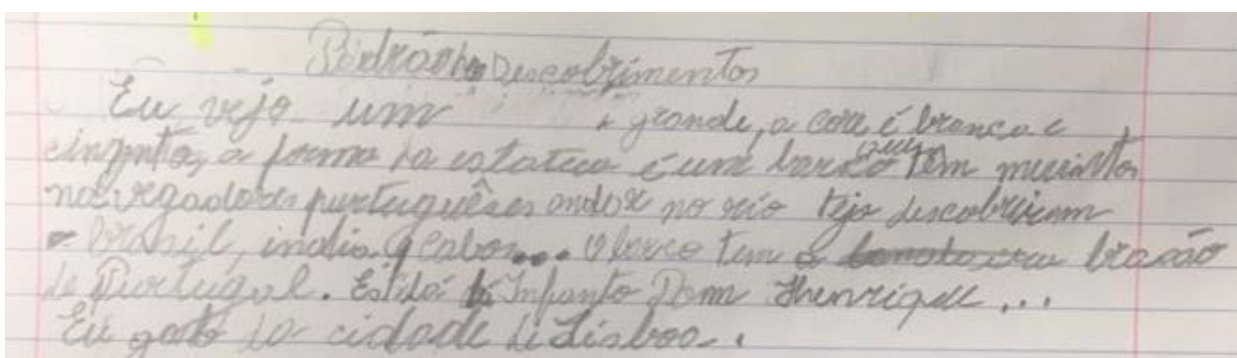 Padrão dos Descobrimentos
Eu vejo um grande, a core é branca e
cinzento, a forma da estatua é um barco que tem muintos
navegadores purtuguêses andar no rio tejo descobriram
o brasil, india, e cabo... O barco tem o brasão
de Purtugal. Está lá Infanto Dom Henrique...
Eu gosto da cidade de Lisboa.